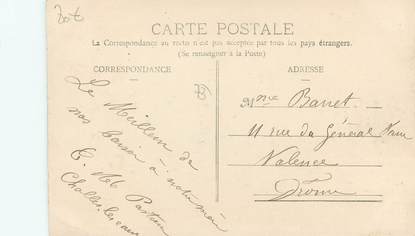 CARTE POSTALE
La Correspondance au recto n'est pas acceptée par tous les pays étrangers.
(Se renseigner à la Poste)
CORRESPONDANCE
ADRESSE
Le Meilleur de
nos baisers à notre mère
Challes les eaux
Mme Barret
11 rue du Général
Valence
Drôme